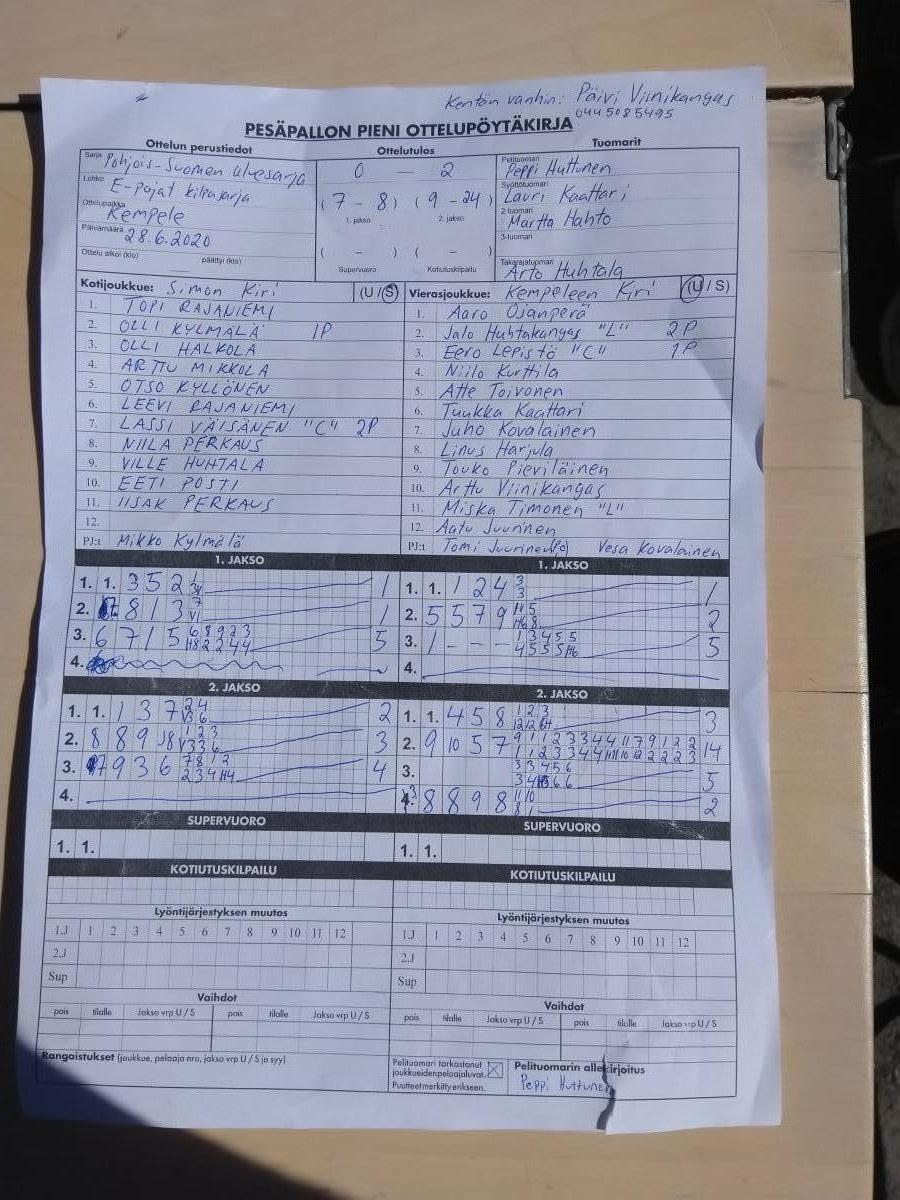 Kentän vanhin: Päivi Viinikangas
0445085495
PESÄPALLON PIENI OTTELUPÖYTÄKIRJA
Ottelun perustiedot
Ottelutulos
Tuomarit
Sarja Pohjois-Suomen aluesarja
Lohko E-pojat kilpasarja
Ottelupaikka Kempele
Päivämäärä 28.6.2020
Ottelu alkoi (klo) päättyi (klo)
0 — 2
(7 - 8) (9 - 24)
1. jakso 2. jakso
( - ) ( - )
Supervuoro Kotiutuskilpailu
Pelituomari Peppi Huttunen
Syöttötuomari Lauri Kaattari
2-tuomari Martta Hahto
3-tuomari
Takarajatuomari Arto Huhtala
Kotijoukkue: Simon Kiri (U / S)
1. TOPI RAJANIEMI
2. OLLI KYLMÄLÄ 1P
3. OLLI HALKOLA
4. ARTTU MIKKOLA
5. OTSO KYLLÖNEN
6. LEEVI RAJANIEMI
7. LASSI VÄISÄNEN "C" 2P
8. NIILA PERKAUS
9. VILLE HUHTALA
10. EETI POSTI
11. IISAK PERKAUS
12.
PJ:t Mikko Kylmälä
Vierasjoukkue: Kempeleen Kiri (U / S)
1. Aaro Ojanperä
2. Jalo Huhtakangas "L" 2P
3. Eero Lepistö "C" 1P
4. Niilo Kurttila
5. Atte Toivonen
6. Tuukka Kaattari
7. Juho Kovalainen
8. Linus Harjula
9. Touko Pieviläinen
10. Arttu Viinikangas
11. Miska Timonen "L"
12. Aatu Juurinen
PJ:t Tomi Vesa Kovalainen
1. JAKSO
1. 1. 3 5 2 1
2. 8 1 3 1
3. 6 7 1 5 5
4.
1. JAKSO
1. 1. 1 2 4 3 3 1
2. 5 5 7 9 2
3. 1 - - - 5
4.
2. JAKSO
1. 1. 1 3 7 2
2. 8 8 9 3
3. 9 3 6 4
4.
2. JAKSO
1. 1. 4 5 8 3
2. 9 10 5 7 14
3. 5
8 8 9 8 2
SUPERVUORO
1. 1.
SUPERVUORO
1. 1.
KOTIUTUSKILPAILU
KOTIUTUSKILPAILU
Lyöntijärjestyksen muutos
1.J 1 2 3 4 5 6 7 8 9 10 11 12
2.J
Sup
Lyöntijärjestyksen muutos
1.J 1 2 3 4 5 6 7 8 9 10 11 12
2.J
Sup
Vaihdot
pois tilalle Jakso vrp U / S pois tilalle Jakso vrp U / S
Vaihdot
pois tilalle Jakso vrp U / S pois tilalle Jakso vrp U / S
Rangaistukset (joukkue, pelaaja nro, jakso vrp U / S ja syy)
Pelituomari tarkastanut
joukkueidenpelaajaluvat.
Puutteetmerkittyerikseen.
Pelituomarin allekirjoitus
Peppi Huttunen